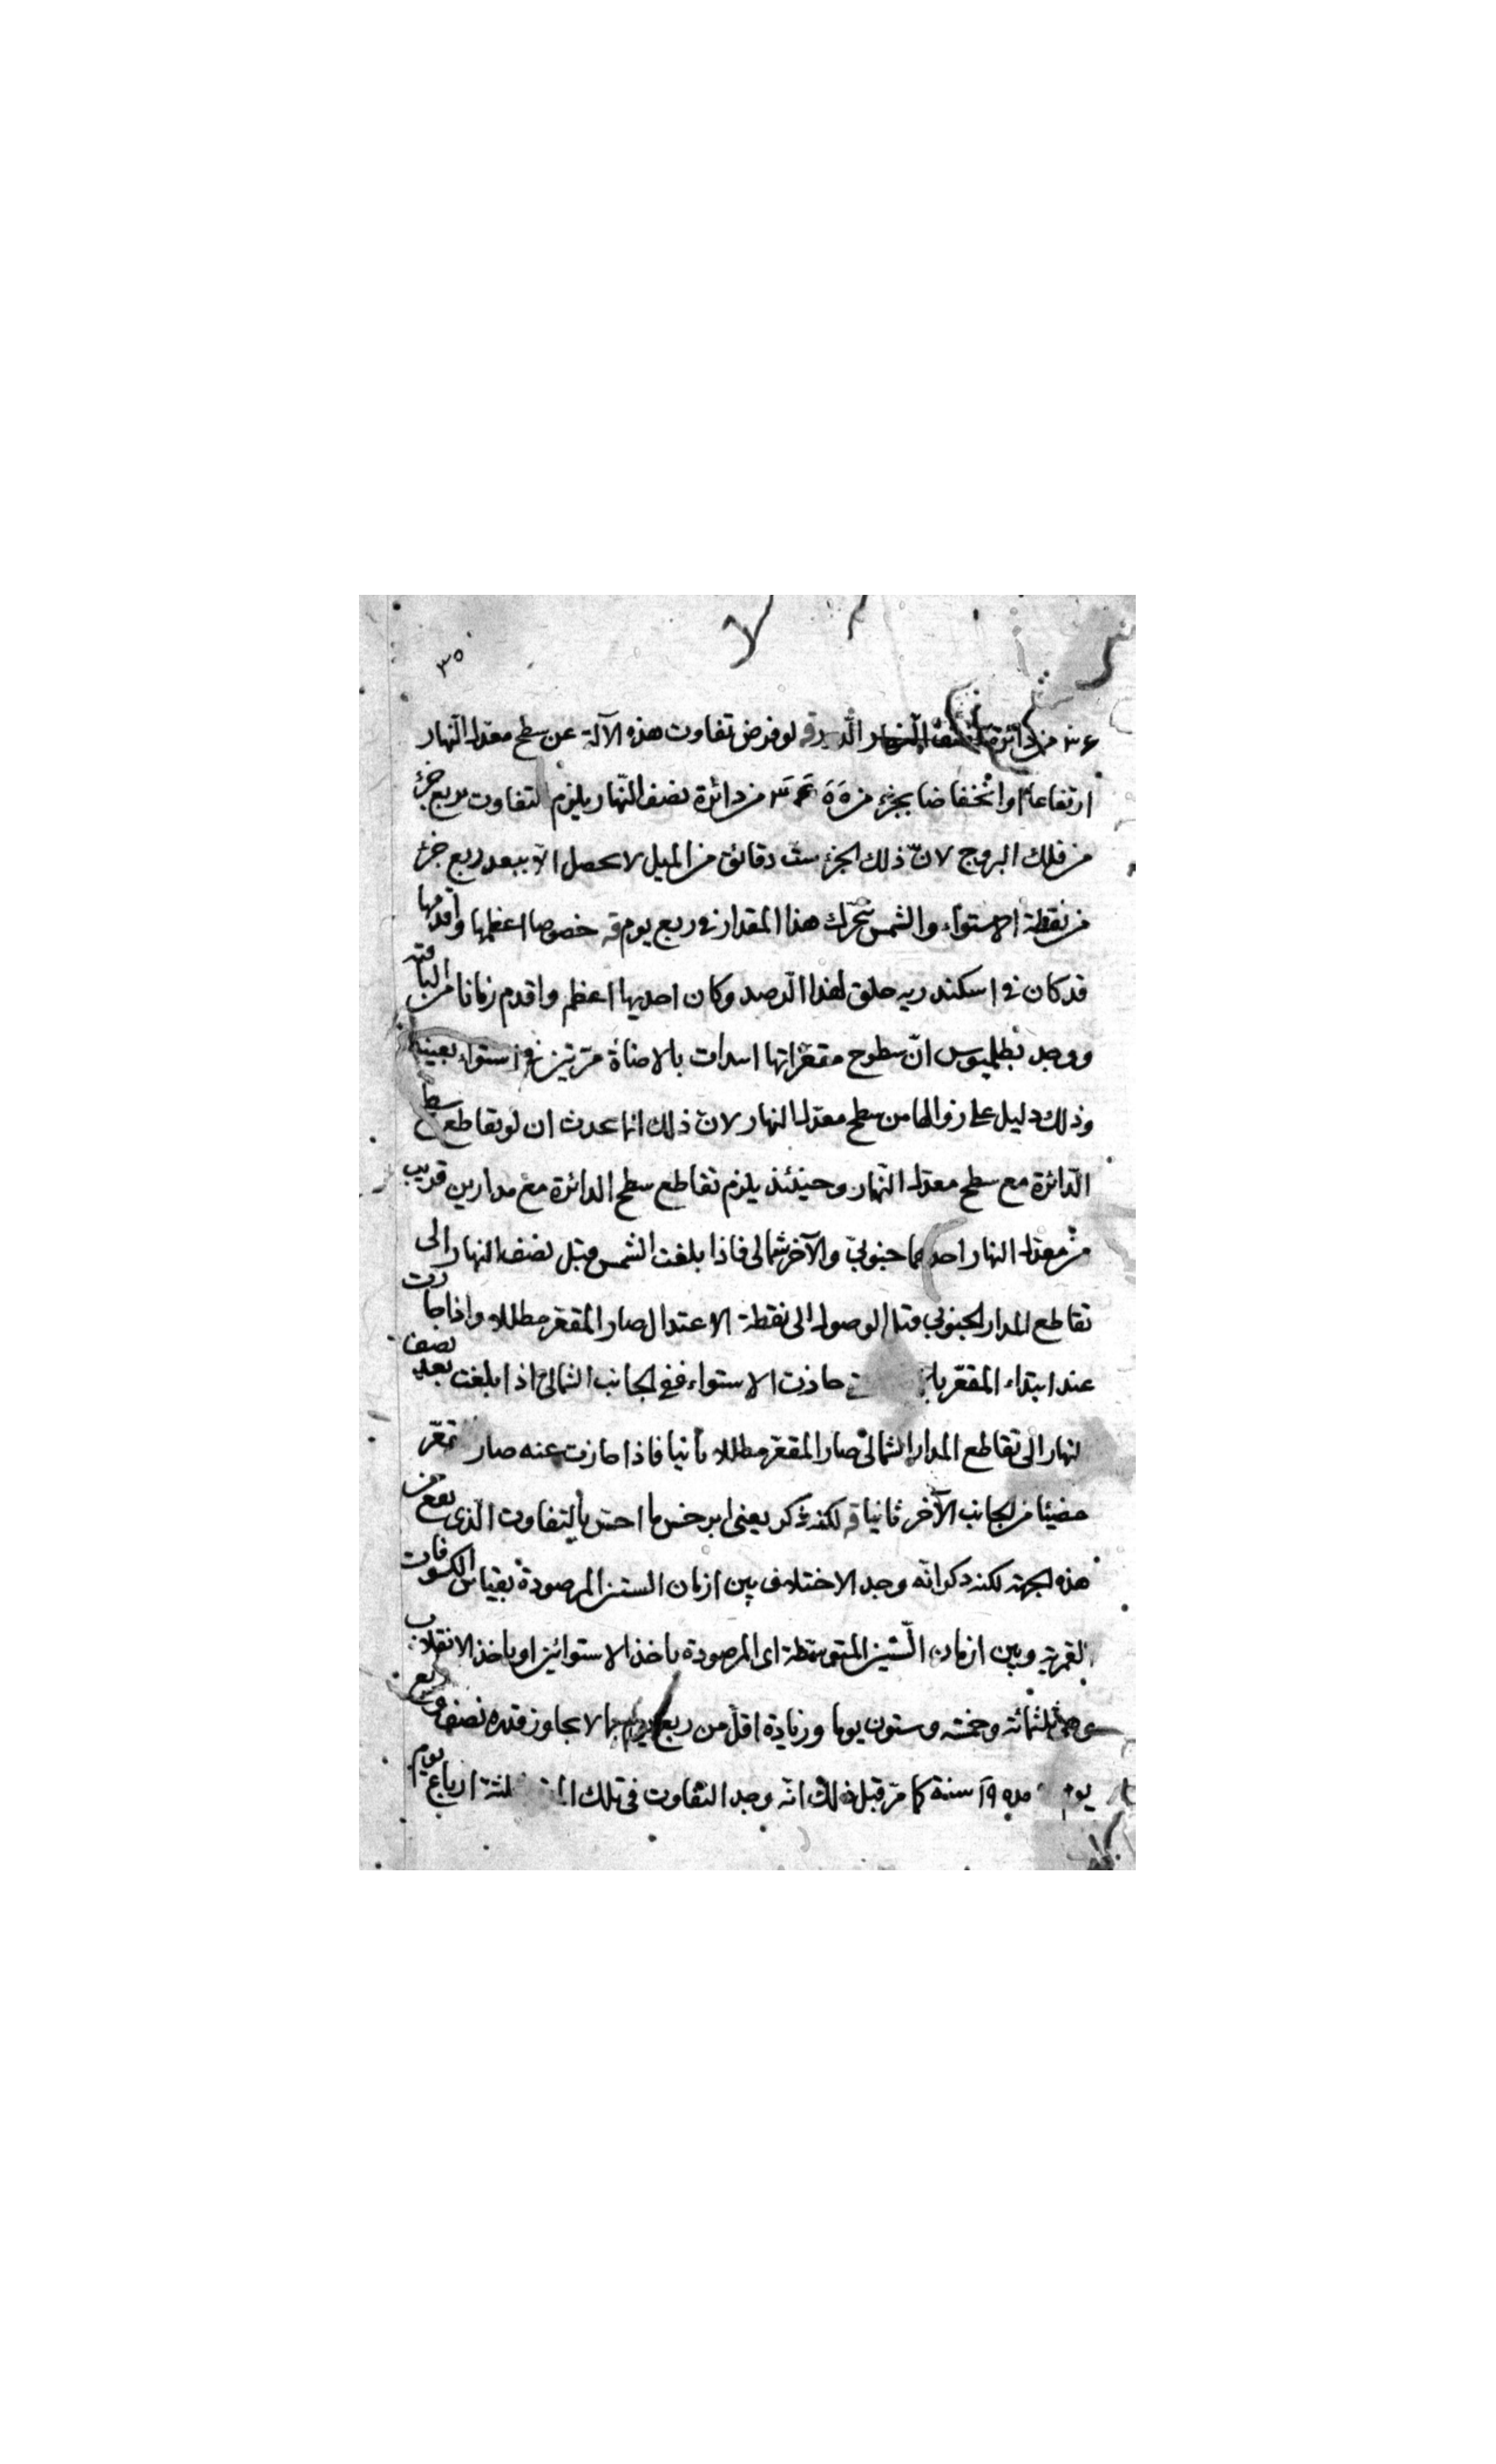 ٣٥
من دائرة نصف النهار لو فرض تفاوت هذه الآلة عن سطح معدل النهار
ارتفاعا او انخفاضا بجزء من من دائرة نصف النهار يلزم التفاوت بربع جزء
من فلك البروج لانّ ذلك الجزء ستّ دقائق من الميل لا يحصل الّا ببعد ربع جزء
من نقطة الاستواء والشمس تتحرّك هذا المقدار فى ربع يوم قه خصوصا اعظمها واقدمها
قد كان فى اسكندريه حلق لهذا الرصد وكان احديها اعظم واقدم زمانا من الباقية
ووجد بطلميوس انّ سطوح مقعّراتها ابتدات بالاضاءة مرّتين فى استواء بعينه
وذلك دليل على زوالها من سطح معدل النهار لانّ ذلك انما يحدث ان لو تقاطع سطح
الدّائرة مع سطح معدل النّهار وحينئذ يلزم تقاطع سطح الدائرة مع مدارين قريب
من معدل النهار احدهما جنوبىّ والآخر شمالى فاذا بلغت الشمس قبل نصف النهار الى
تقاطع المدار الجنوبى قبل الوصول الى نقطة الاعتدال صار المقعّر مظللا واذا جازت
عند ابتداء المقعّر حاذت الاستواء ففى الجانب الشمالى اذا بلغت بعد نصف
النهار الى تقاطع المدار الشمالى صار المقعّر مظللا ثانيا فاذا جازت عنه صار المقعّر
مضيئا من الجانب الآخر ثانيا قه لكنه ذكر يعنى ابرخس ما احسّ بالتفاوت الّذى يقع من
هذه الجهة لكنه ذكر انّه وجد الاختلاف بين ازمان السنين المرصودة بقياس الكسوفات
القمرية وبين ازمان السّنين المتوسّطة اى المرصودة باخذ الاستوائين او باخذ الانقلاب
وهى ثلثمائة وخمسة وستون يوما وزيادة اقلّ من ربع يوم بما لا يجاوز قدره نصف وربع
يوم سنة كما مرّ قبل ذلك انّه وجد التفاوت فى تلك ثلثة ارباع يوم